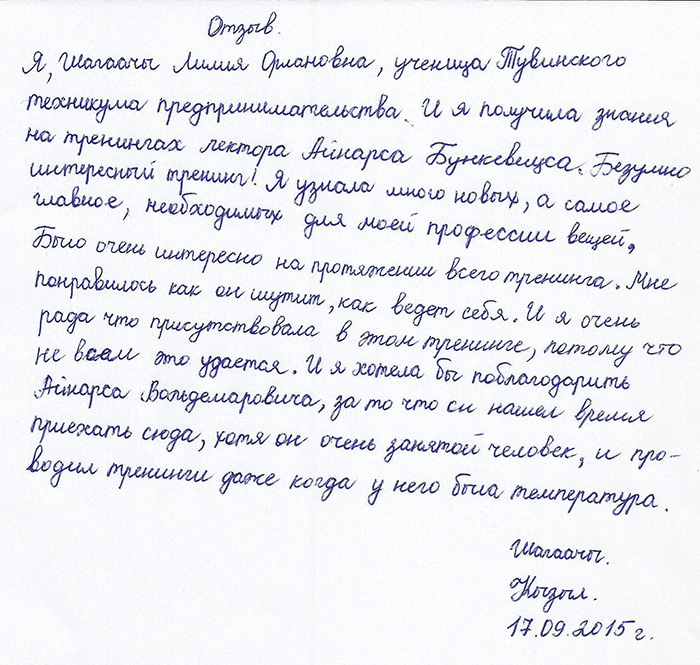 Отзыв.
Я, Шагаачы Лилия Орлановна, ученица Тувинского
техникума предпринимательства. И я получила знания
на тренингах лектора Айнарса Бункевицса. Безумно
интересный тренинг! Я узнала много новых, а самое
главное, необходимых для моей профессии вещей.
Было очень интересно на протяжении всего тренинга. Мне
понравилось как он шутит, как ведет себя. И я очень
рада что присутствовала в этом тренинге, потому что
не всем это удается. И я хотела бы поблагодарить
Айнарса Вольдемаровича, за то что он нашел время
приехать сюда, хотя он очень занятой человек, и про-
водил тренинги даже когда у него была температура.
Шагаачы.
Кызыл.
17.09.2015 г.